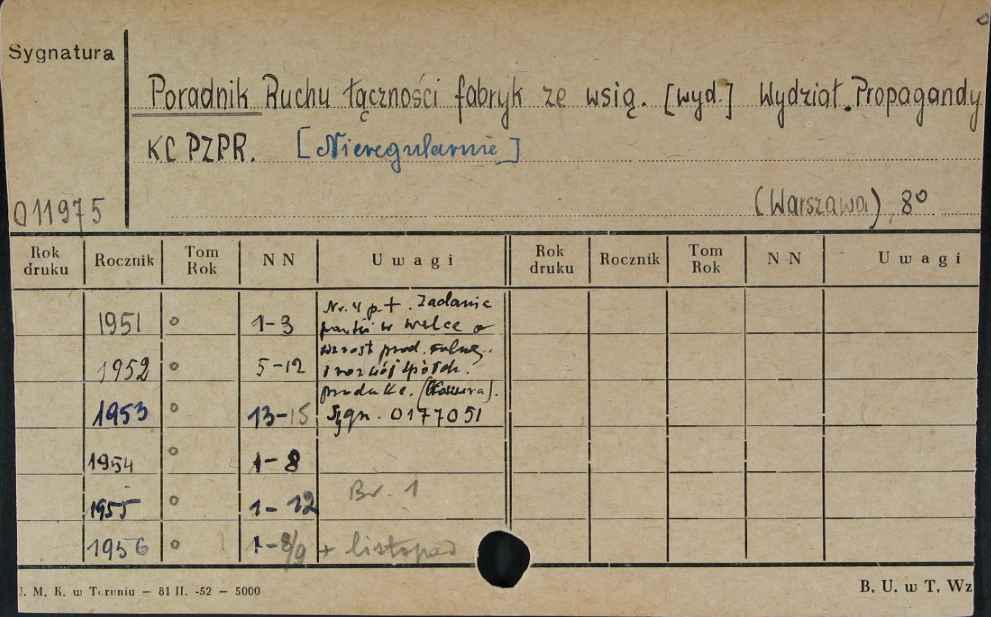 Sygnatura
Poradnik Ruchu łączności fabryk ze wsią. [wyd.] Wydział Propagandy
KC PZPR. [Nieregularnie]
011975
(Warszawa), 8°
Rok druku Rocznik Tom Rok NN Uwagi Rok druku Rocznik Tom Rok NN Uwagi
Nr. 4 p.t. Zadanie
1951 ° 1-3 partii w walce o
wzrost prod. rolnej
1952 ° 5-12 i rozwój spółdz.
produkc. [Broszura].
1953 ° 13-15 Sygn. 0177051
1954 ° 1-8
1955 ° 1-12 Br. 1
1956 ° 1-8/9 + listopad
U. M. K. w Toruniu — 81 II. -52 — 5000
B. U. w T. Wz